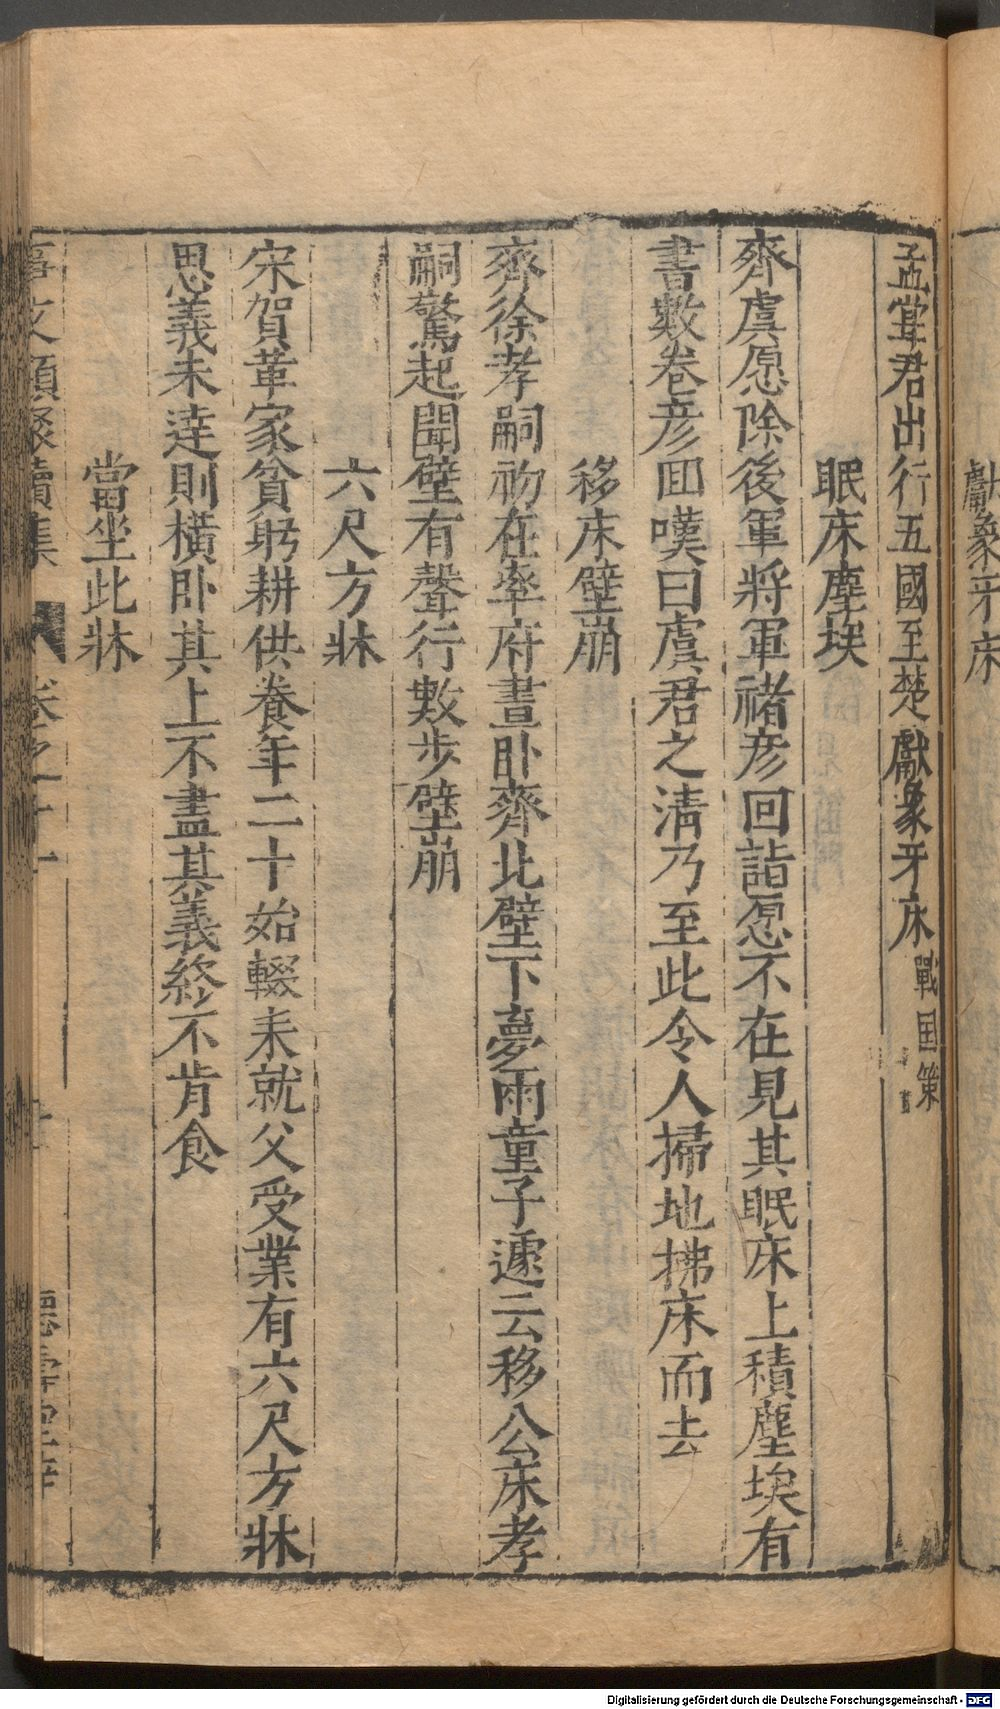 獻象牙床
孟甞君出行五國至楚獻象牙床戰国策
眠床塵埃
齊虞愿除後軍將軍禇彥回詣愿不在見其眠床上積塵埃有
書數卷彥囬嘆曰虞君之清乃至此令人掃地拂床而去
移床壁崩
齊徐孝嗣初在率府晝卧齊北壁下夢兩童子遽云移公床孝
嗣驚起聞壁有聲行數步壁崩
六尺方牀
宋賀革家貧躬耕供養年二十始輟耒就父受業有六尺方牀
思義未逹則橫卧其上不盡其義終不肯食
當坐此牀
事文類聚續集 卷之十一
Digitalisierung gefördert durch die Deutsche Forschungsgemeinschaft - DFG